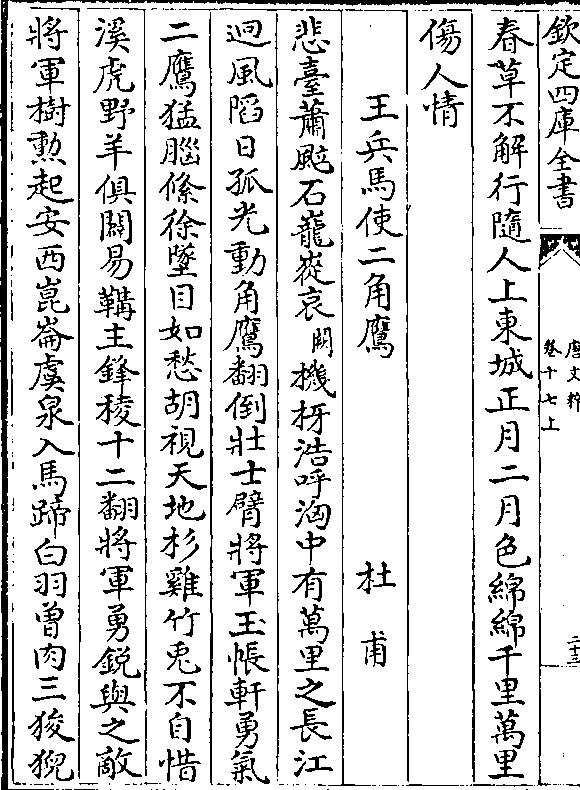 欽定四庫全書
唐文粹
卷十七上
二十三
春草不解行隨人上東城正月二月色綿綿千里萬里
傷人情
王兵馬使二角鷹　杜甫
悲臺蕭颼石巃嵸哀闕機枒浩呼洶中有萬里之長江
迴風陷日孤光動角鷹翻倒壯士臂將軍玉帳軒勇氣
二鷹猛腦絛徐墜目如愁胡視天地杉雞竹兎不自惜
溪虎野羊俱闢易鞲主鋒稜十二翻將軍勇銳與之敵
將軍樹勲起安西崑崙虞泉入馬蹄白羽曽肉三狻猊